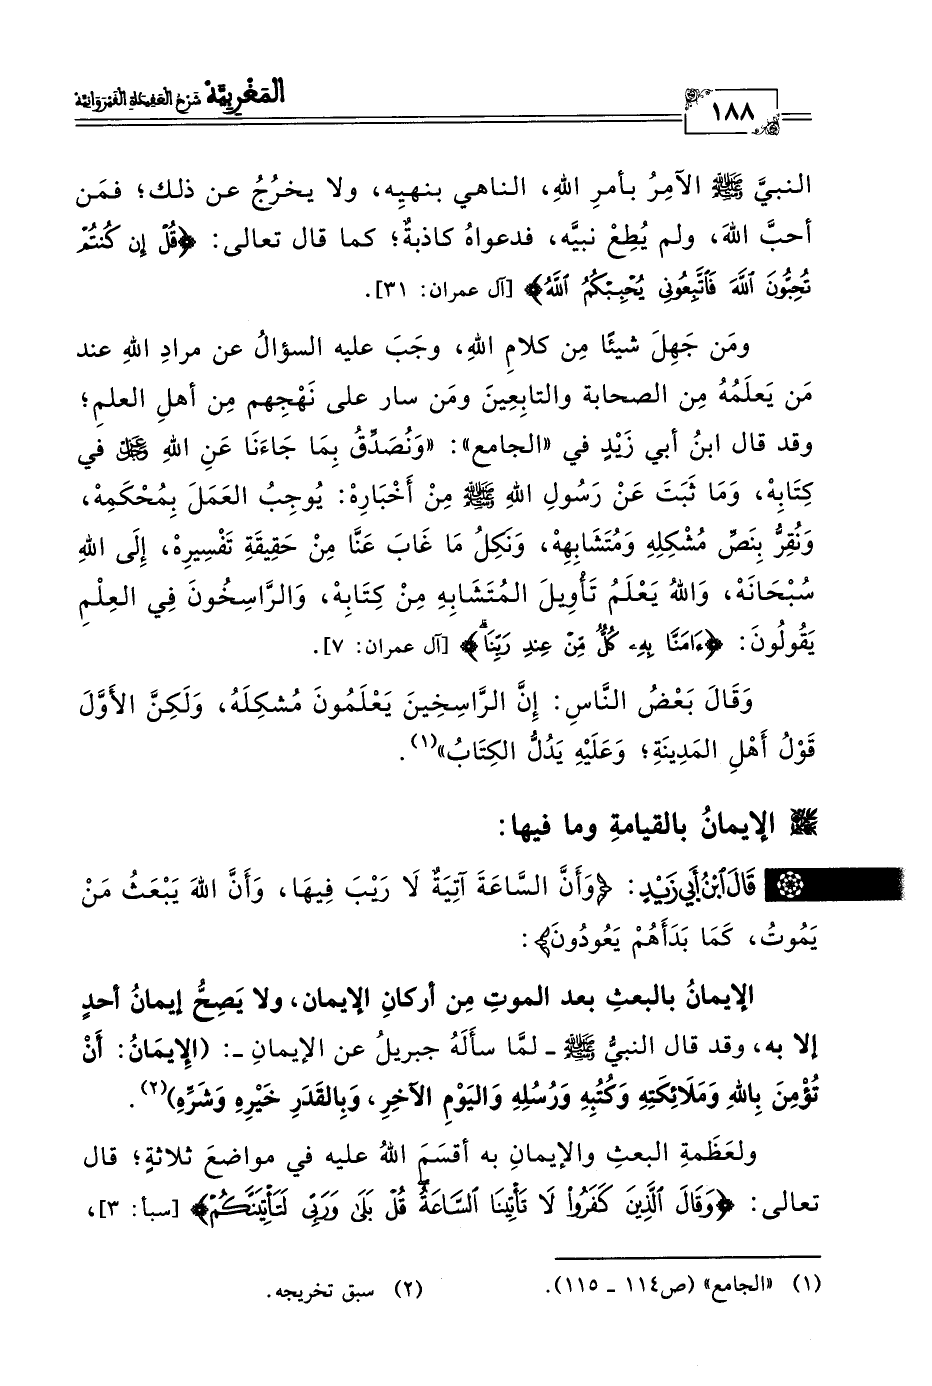 المَغْرِبِيَّة شَرْحُ العَقِيدَةِ القَيْرَوَانِيَّة
١٨٨
النبيَّ ﷺ الآمِرُ بأمرِ اللهِ، الناهي بنهيِه، ولا يخرُجُ عن ذلك؛ فمَن
أحبَّ اللهَ، ولم يُطِعْ نبيَّه، فدعواهُ كاذبةٌ؛ كما قال تعالى: ﴿قُلْ إِن كُنتُمْ
تُحِبُّونَ ٱللَّهَ فَٱتَّبِعُونِي يُحْبِبْكُمُ ٱللَّهُ﴾ [آل عمران: ٣١].
ومَن جَهِلَ شيئًا مِن كلامِ اللهِ، وجَبَ عليه السؤالُ عن مرادِ اللهِ عند
مَن يَعلَمُهُ مِن الصحابة والتابِعِينَ ومَن سار على نَهْجِهم مِن أهلِ العلمِ؛
وقد قال ابنُ أبي زَيْدٍ في «الجامع»: «وَنُصَدِّقُ بِمَا جَاءَنَا عَنِ اللهِ ﷻ في
كِتَابِهْ، وَمَا ثَبَتَ عَنْ رَسُولِ اللهِ ﷺ مِنْ أَخْبَارِهْ: يُوجِبُ العَمَلَ بِمُحْكَمِهْ،
وَنُقِرُّ بِنَصِّ مُشْكِلِهِ وَمُتَشَابِهِهْ، وَنَكِلُ مَا غَابَ عَنَّا مِنْ حَقِيقَةِ تَفْسِيرِهْ، إِلَى اللهِ
سُبْحَانَهْ، وَاللهُ يَعْلَمُ تَأْوِيلَ المُتَشَابِهِ مِنْ كِتَابِهْ، وَالرَّاسِخُونَ فِي العِلْمِ
يَقُولُونَ: ﴿ءَامَنَّا بِهِۦ كُلٌّ مِّنْ عِندِ رَبِّنَا﴾ [آل عمران: ٧].
وَقَالَ بَعْضُ النَّاسِ: إِنَّ الرَّاسِخِينَ يَعْلَمُونَ مُشْكِلَهُ، وَلَكِنَّ الأَوَّلَ
قَوْلُ أَهْلِ المَدِينَةِ؛ وَعَلَيْهِ يَدُلُّ الكِتَابُ»(١).
الإيمانُ بالقيامةِ وما فيها:
قَالَ ٱبْنُ أَبِي زَيْدٍ: ﴿وَأَنَّ السَّاعَةَ آتِيَةٌ لَا رَيْبَ فِيهَا، وَأَنَّ اللهَ يَبْعَثُ مَنْ
يَمُوتُ، كَمَا بَدَأَهُمْ يَعُودُونَ﴾:
الإيمانُ بالبعثِ بعد الموتِ مِن أركانِ الإيمان، ولا يَصِحُّ إيمانُ أحدٍ
إلا به، وقد قال النبيُّ ﷺ ـ لمَّا سأَلَهُ جبريلُ عن الإيمانِ ـ: (الإِيمَانُ: أَنْ
تُؤْمِنَ بِاللهِ وَمَلَائِكَتِهِ وَكُتُبِهِ وَرُسُلِهِ وَاليَوْمِ الآخِرِ، وَبِالقَدَرِ خَيْرِهِ وَشَرِّهِ)(٢).
ولعَظَمةِ البعثِ والإيمانِ به أقسَمَ اللهُ عليه في مواضعَ ثلاثةٍ؛ قال
تعالى: ﴿وَقَالَ ٱلَّذِينَ كَفَرُوا۟ لَا تَأْتِينَا ٱلسَّاعَةُ قُلْ بَلَىٰ وَرَبِّى لَتَأْتِيَنَّكُمْ﴾ [سبأ: ٣]،
(١) «الجامع» (ص١١٤ ـ ١١٥). (٢) سبق تخريجه.